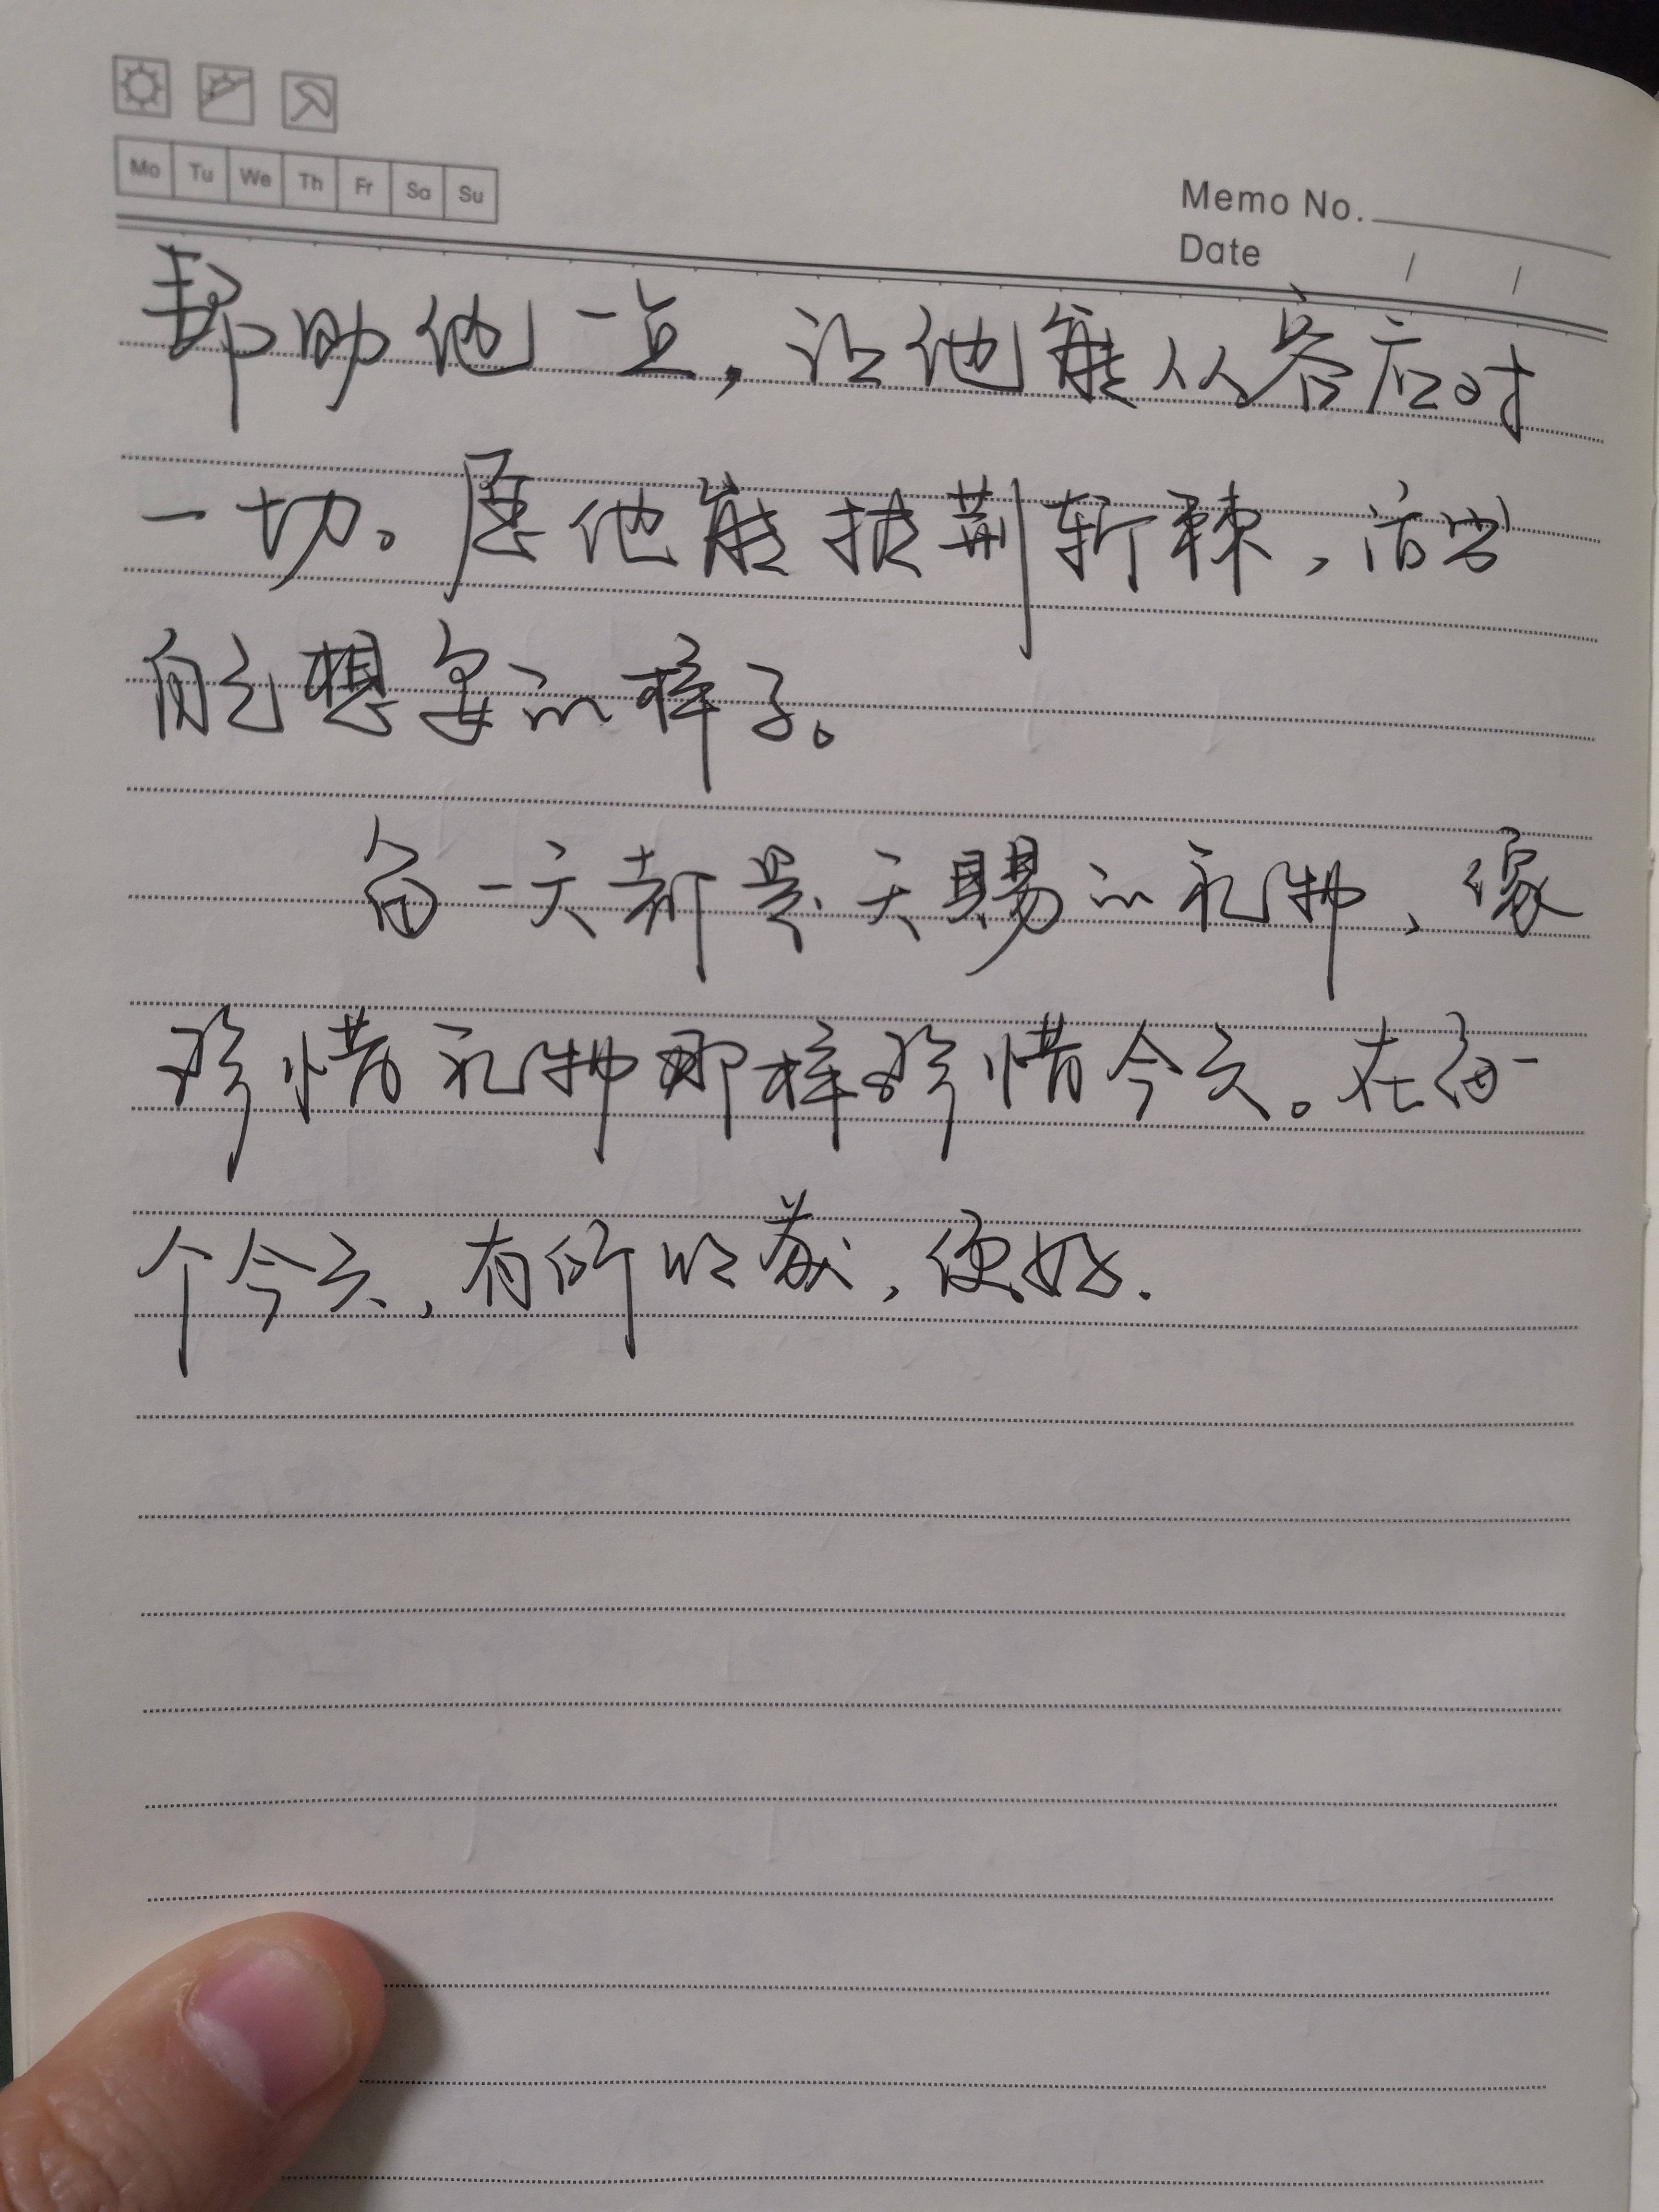 Mo Tu We Th Fr Sa Su
Memo No.
Date / /
帮助他一点，让他能从容应对
一切。愿他能披荆斩棘，活出
自己想要的样子。
每一天都是天赐的礼物，像
珍惜礼物那样珍惜今天。在每一
个今天，有所收获，便好.